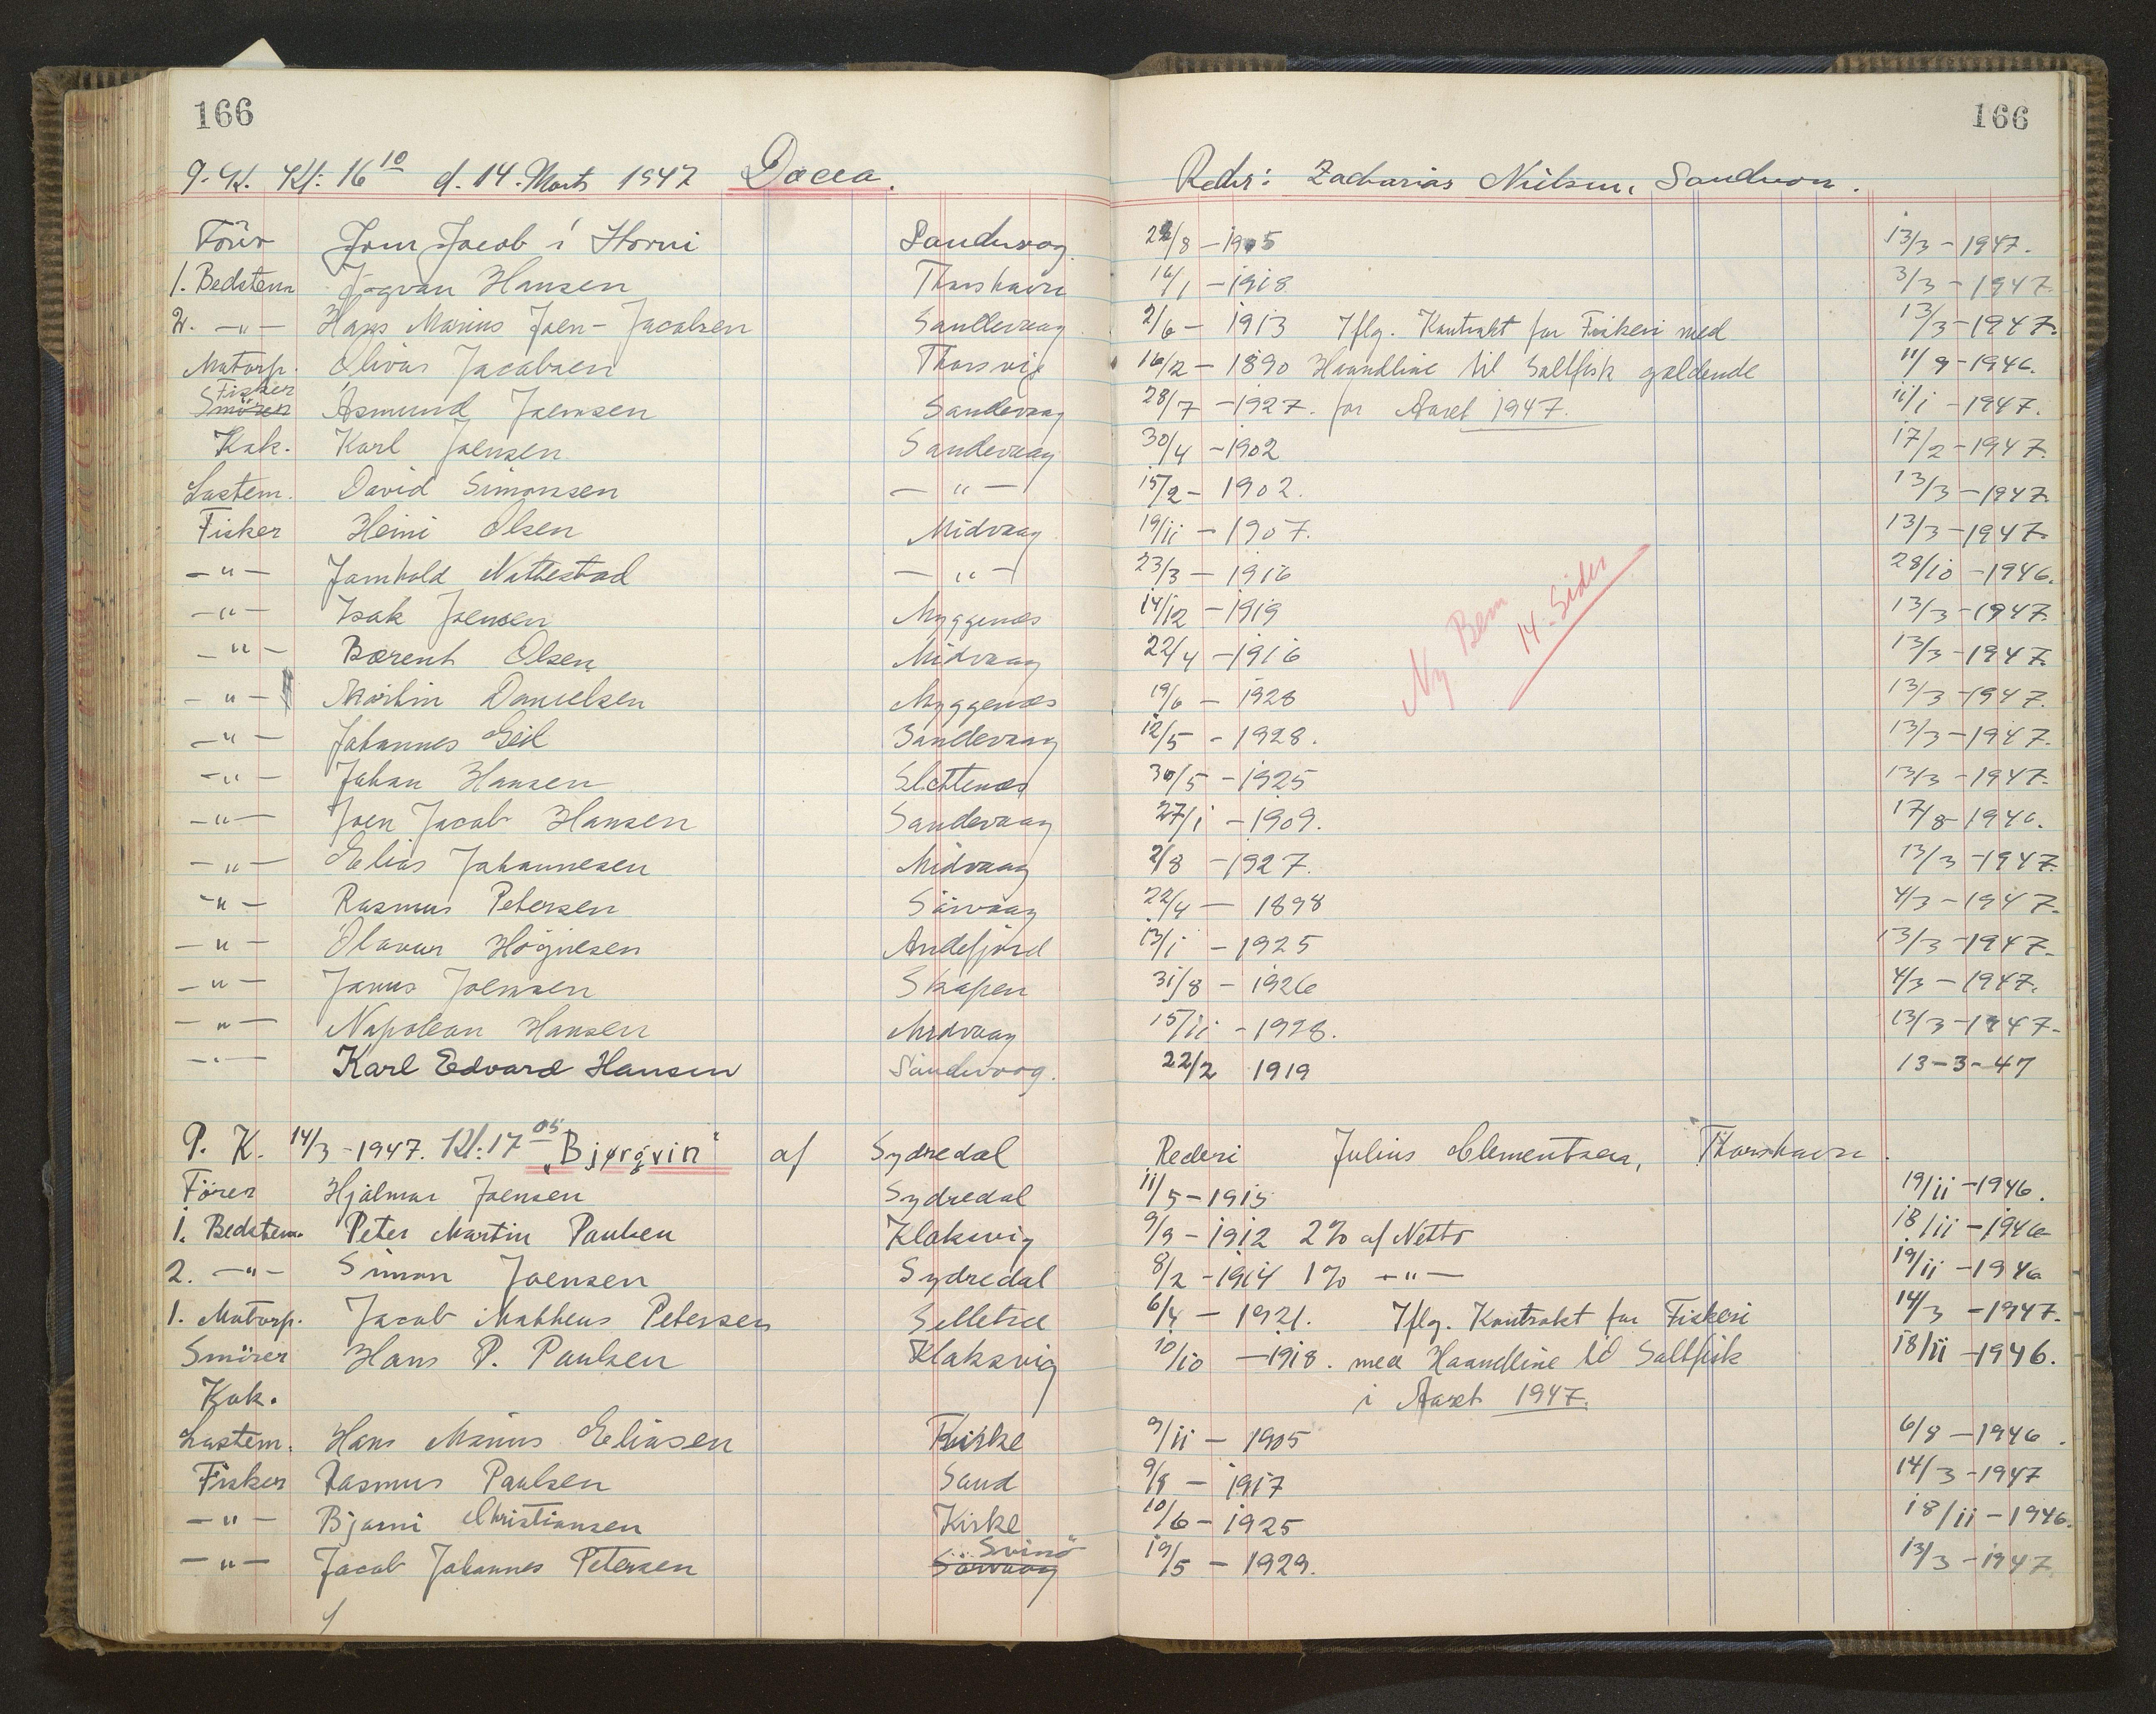 166 166
P. K. Kl: 16 10 d. 14. Marts 1947 Docea. Redr: Zacharias Nielsen, Sandvou.
Förer Joen Jacob í Horni Sandevaag. 22/8 - 1905 13/3 - 1947.
1. Bedstem Jógvan Hansen Thorshavn 16/1 - 1918 3/3 - 1947.
2. -"- Hans Marius Joen-Jacobsen Sandevaag 2/6 - 1913 Iflg. Kontrakt for Fiskeri med 13/3 - 1947.
Motorp. Olivar Jacobsen Thorsvig 16/2 - 1890 Haandline til Saltfisk gældende 11/9 - 1946.
Fisker
Smören Ásmund Joensen Sandevaag 28/7 - 1927. for Aaret 1947. 11/1 - 1947.
Kok. Karl Joensen Sandevaag 30/4 - 1902 17/2 - 1947.
Lastem. David Simonsen -"- 15/2 - 1902. 13/3 - 1947.
Fisker Heini Olsen Midvaag 19/11 - 1907. 13/3 - 1947.
-"- Jomhold Nattestad -"- 23/3 - 1916 28/10 - 1946.
-"- Isak Joensen Myggenæs 14/12 - 1919 13/3 - 1947.
Ny Bem 14. Sider
-"- Bærent Olsen Midvaag 22/4 - 1916 13/3 - 1947.
-"- Mortin Danielsen Myggenæs 19/6 - 1928 13/3 - 1947.
-"- Johannes Geil Sandevaag 12/5 - 1928. 13/3 - 1947.
-"- Johan Hansen Slettenæs 30/5 - 1925 13/3 - 1947.
-"- Joen Jacob Hansen Sandevaag 27/1 - 1909. 17/8 - 1946.
-"- Elias Johannesen Midvaag 2/8 - 1927. 13/3 - 1947.
-"- Rasmus Petersen Sörvaag 22/4 - 1898 4/3 - 1947.
-"- Ólavur Högnesen Andefjord 13/1 - 1925 13/3 - 1947.
-"- Janus Joensen Skapen 31/8 - 1926 4/3 - 1947.
-"- Napoleon Hansen Midvaag 15/11 - 1928. 13/3 - 1947.
-"- Karl Edvard Hansen Sandevoog. 22/2 1919 13-3-47
P. K. 14/3 - 1947. Kl: 17 05 "Bjørgvin" af Sydredal Rederi Julius Clementsen, Thorshavn.
Förer Hjálmar Joensen Sydredal 11/5 - 1915 19/11 - 1946.
1. Bedstem. Peter Martin Paulsen Klaksvig 9/9 - 1912 2% af Netto 18/11 - 1946
2. -"- Simon Joensen Sydredal 8/2 - 1914 1% -"- 19/11 - 1946
1. Motorp. Jacob Matheus Petersen Selletræ 6/4 - 1921. Iflg. Kontrakt for Fiskeri 14/3 - 1947.
Smörer Hans P. Paulsen Klaksvig 10/10 - 1918. med Haandline til Saltfisk 18/11 - 1946.
Kok. i Aaret 1947.
Lastem. Hans Marius Eliasen Kirke 9/11 - 1905 6/8 - 1946.
Fisker Rasmus Paulsen Sand 9/8 - 1917 14/3 - 1947
-"- Bjarni Christiansen Kirke 10/6 - 1925 18/11 - 1946.
Svinö
-"- Jacob Johannes Petersen Sörvaag 19/5 - 1929. 13/3 - 1947.